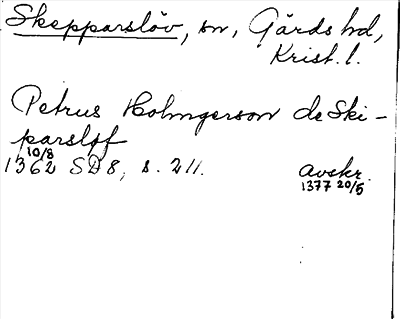 Skepparslöv, sn, Gärds hd,
Krist. l.
Petrus Holmgerson de Ski-
parsløf
10/8
1362 SD 8, s. 211.
avskr.
1377 20/5